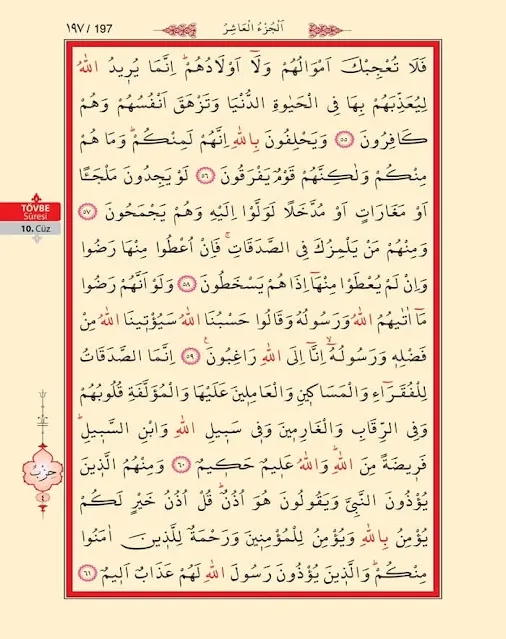 ١٩٧ / 197
اَلْجُزْءُ الْعَاشِرُ
فَلَا تُعْجِبْكَ اَمْوَالُهُمْ وَلَٓا اَوْلَادُهُمْۜ اِنَّمَا يُر۪يدُ اللّٰهُ
لِيُعَذِّبَهُمْ بِهَا فِي الْحَيٰوةِ الدُّنْيَا وَتَزْهَقَ اَنْفُسُهُمْ وَهُمْ
كَافِرُونَ ٥٥ وَيَحْلِفُونَ بِاللّٰهِ اِنَّهُمْ لَمِنْكُمْۜ وَمَا هُمْ
مِنْكُمْ وَلٰكِنَّهُمْ قَوْمٌ يَفْرَقُونَ ٥٦ لَوْ يَجِدُونَ مَلْجَـًٔا
اَوْ مَغَارَاتٍ اَوْ مُدَّخَلًا لَوَلَّوْا اِلَيْهِ وَهُمْ يَجْمَحُونَ ٥٧
وَمِنْهُمْ مَنْ يَلْمِزُكَ فِي الصَّدَقَاتِۚ فَاِنْ اُعْطُوا مِنْهَا رَضُوا
وَاِنْ لَمْ يُعْطَوْا مِنْهَٓا اِذَا هُمْ يَسْخَطُونَ ٥٨ وَلَوْ اَنَّهُمْ رَضُوا
مَٓا اٰتٰيهُمُ اللّٰهُ وَرَسُولُهُ وَقَالُوا حَسْبُنَا اللّٰهُ سَيُؤْت۪ينَا اللّٰهُ مِنْ
فَضْلِه۪ وَرَسُولُهُۙ اِنَّٓا اِلَى اللّٰهِ رَاغِبُونَ۟ ٥٩ اِنَّمَا الصَّدَقَاتُ
لِلْفُقَرَٓاءِ وَالْمَسَاك۪ينِ وَالْعَامِل۪ينَ عَلَيْهَا وَالْمُؤَلَّفَةِ قُلُوبُهُمْ
وَفِي الرِّقَابِ وَالْغَارِم۪ينَ وَف۪ي سَب۪يلِ اللّٰهِ وَابْنِ السَّب۪يلِۜ
فَر۪يضَةً مِنَ اللّٰهِۜ وَاللّٰهُ عَل۪يمٌ حَك۪يمٌ ٦٠ وَمِنْهُمُ الَّذ۪ينَ
يُؤْذُونَ النَّبِيَّ وَيَقُولُونَ هُوَ اُذُنٌۜ قُلْ اُذُنُ خَيْرٍ لَكُمْ
يُؤْمِنُ بِاللّٰهِ وَيُؤْمِنُ لِلْمُؤْمِن۪ينَ وَرَحْمَةٌ لِلَّذ۪ينَ اٰمَنُوا
مِنْكُمْۜ وَالَّذ۪ينَ يُؤْذُونَ رَسُولَ اللّٰهِ لَهُمْ عَذَابٌ اَل۪يمٌ ٦١
TÖVBE
Sûresi
10. Cüz
حزب
٤